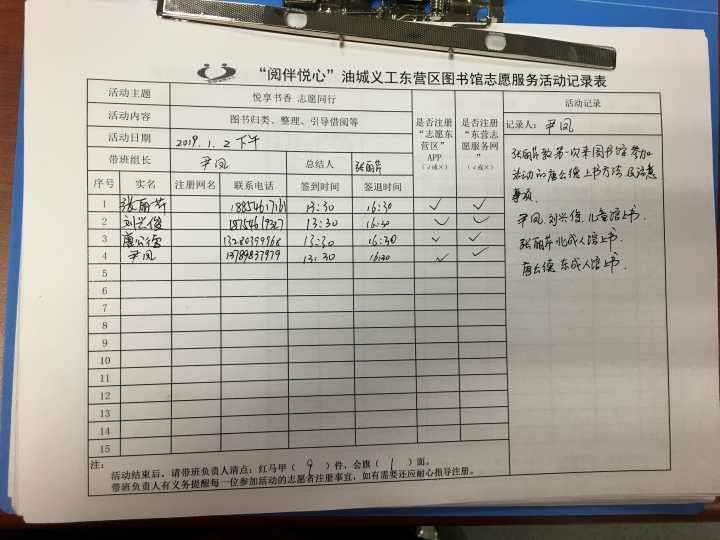 “阅伴悦心”油城义工东营区图书馆志愿服务活动记录表
活动主题 悦享书香 志愿同行
活动内容 图书归类、整理、引导借阅等
活动日期 2019.1.2下午
带班组长 尹凤 总结人 张丽芹
是否注册“志愿东营区”APP（√或×）
是否注册“东营志愿服务网”（√或×）
序号 实名 注册网名 联系电话 签到时间 签退时间
1 张丽芹 13:30 16:30 ✓ ✓
2 刘兴俊 13:30 16:30 ✓ ✓
3 唐公德 13:30 16:30 ✓ ✓
4 尹凤 13789837979 13:30 16:30 ✓ ✓
5
6
7
8
9
10
11
12
13
14
15
活动记录
记录人：尹凤
张丽芹教第一次来图书馆参加
活动的唐公德上书方法及注意
事项.
尹凤.刘兴俊.儿童馆上书.
张丽芹北成人馆上书.
唐公德东成人馆上书.
注：
活动结束后，请带班负责人清点：红马甲（9）件，会旗（1）面。
带班负责人有义务提醒每一位参加活动的志愿者注册事宜，如有需要还应耐心指导注册。